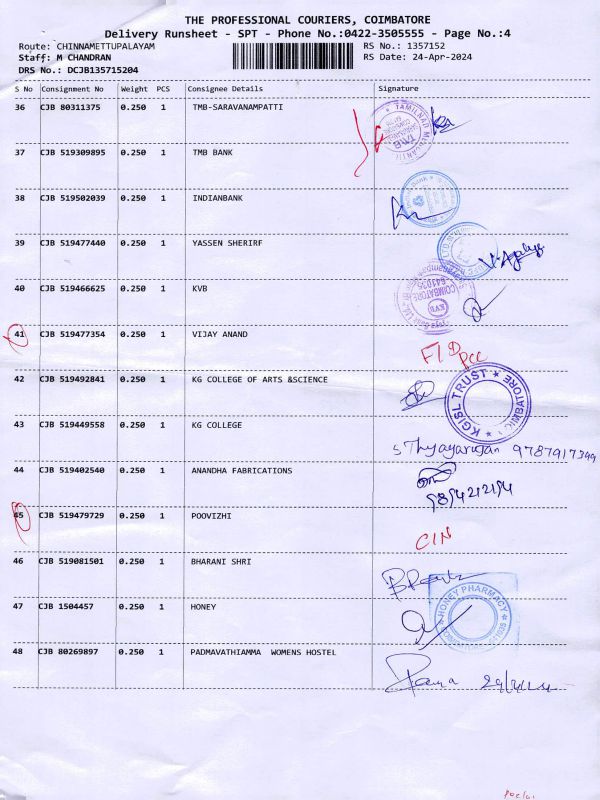 THE PROFESSIONAL COURIERS, COIMBATORE
Delivery Runsheet - SPT - Phone No.:0422-3505555 - Page No.:4
Route: CHINNAMETTUPALAYAM RS No.: 1357152
Staff: M CHANDRAN RS Date: 24-Apr-2024
DRS No.: DCJB135715204
S No Consignment No Weight PCS Consignee Details Signature
36 CJB 80311375 0.250 1 TMB-SARAVANAMPATTI
TMB
37 CJB 519309895 0.250 1 TMB BANK
38 CJB 519502039 0.250 1 INDIANBANK
39 CJB 519477440 0.250 1 YASSEN SHERIRF
40 CJB 519466625 0.250 1 KVB
COIMBATORE
641035
KVB
41 CJB 519477354 0.250 1 VIJAY ANAND
42 CJB 519492841 0.250 1 KG COLLEGE OF ARTS &SCIENCE
KGISL TRUST ★ COIMBATORE ★
43 CJB 519449558 0.250 1 KG COLLEGE
44 CJB 519402540 0.250 1 ANANDHA FABRICATIONS
45 CJB 519479729 0.250 1 POOVIZHI CIN
46 CJB 519081501 0.250 1 BHARANI SHRI
47 CJB 1504457 0.250 1 HONEY
HONEY PHARMACY
48 CJB 80269897 0.250 1 PADMAVATHIAMMA WOMENS HOSTEL